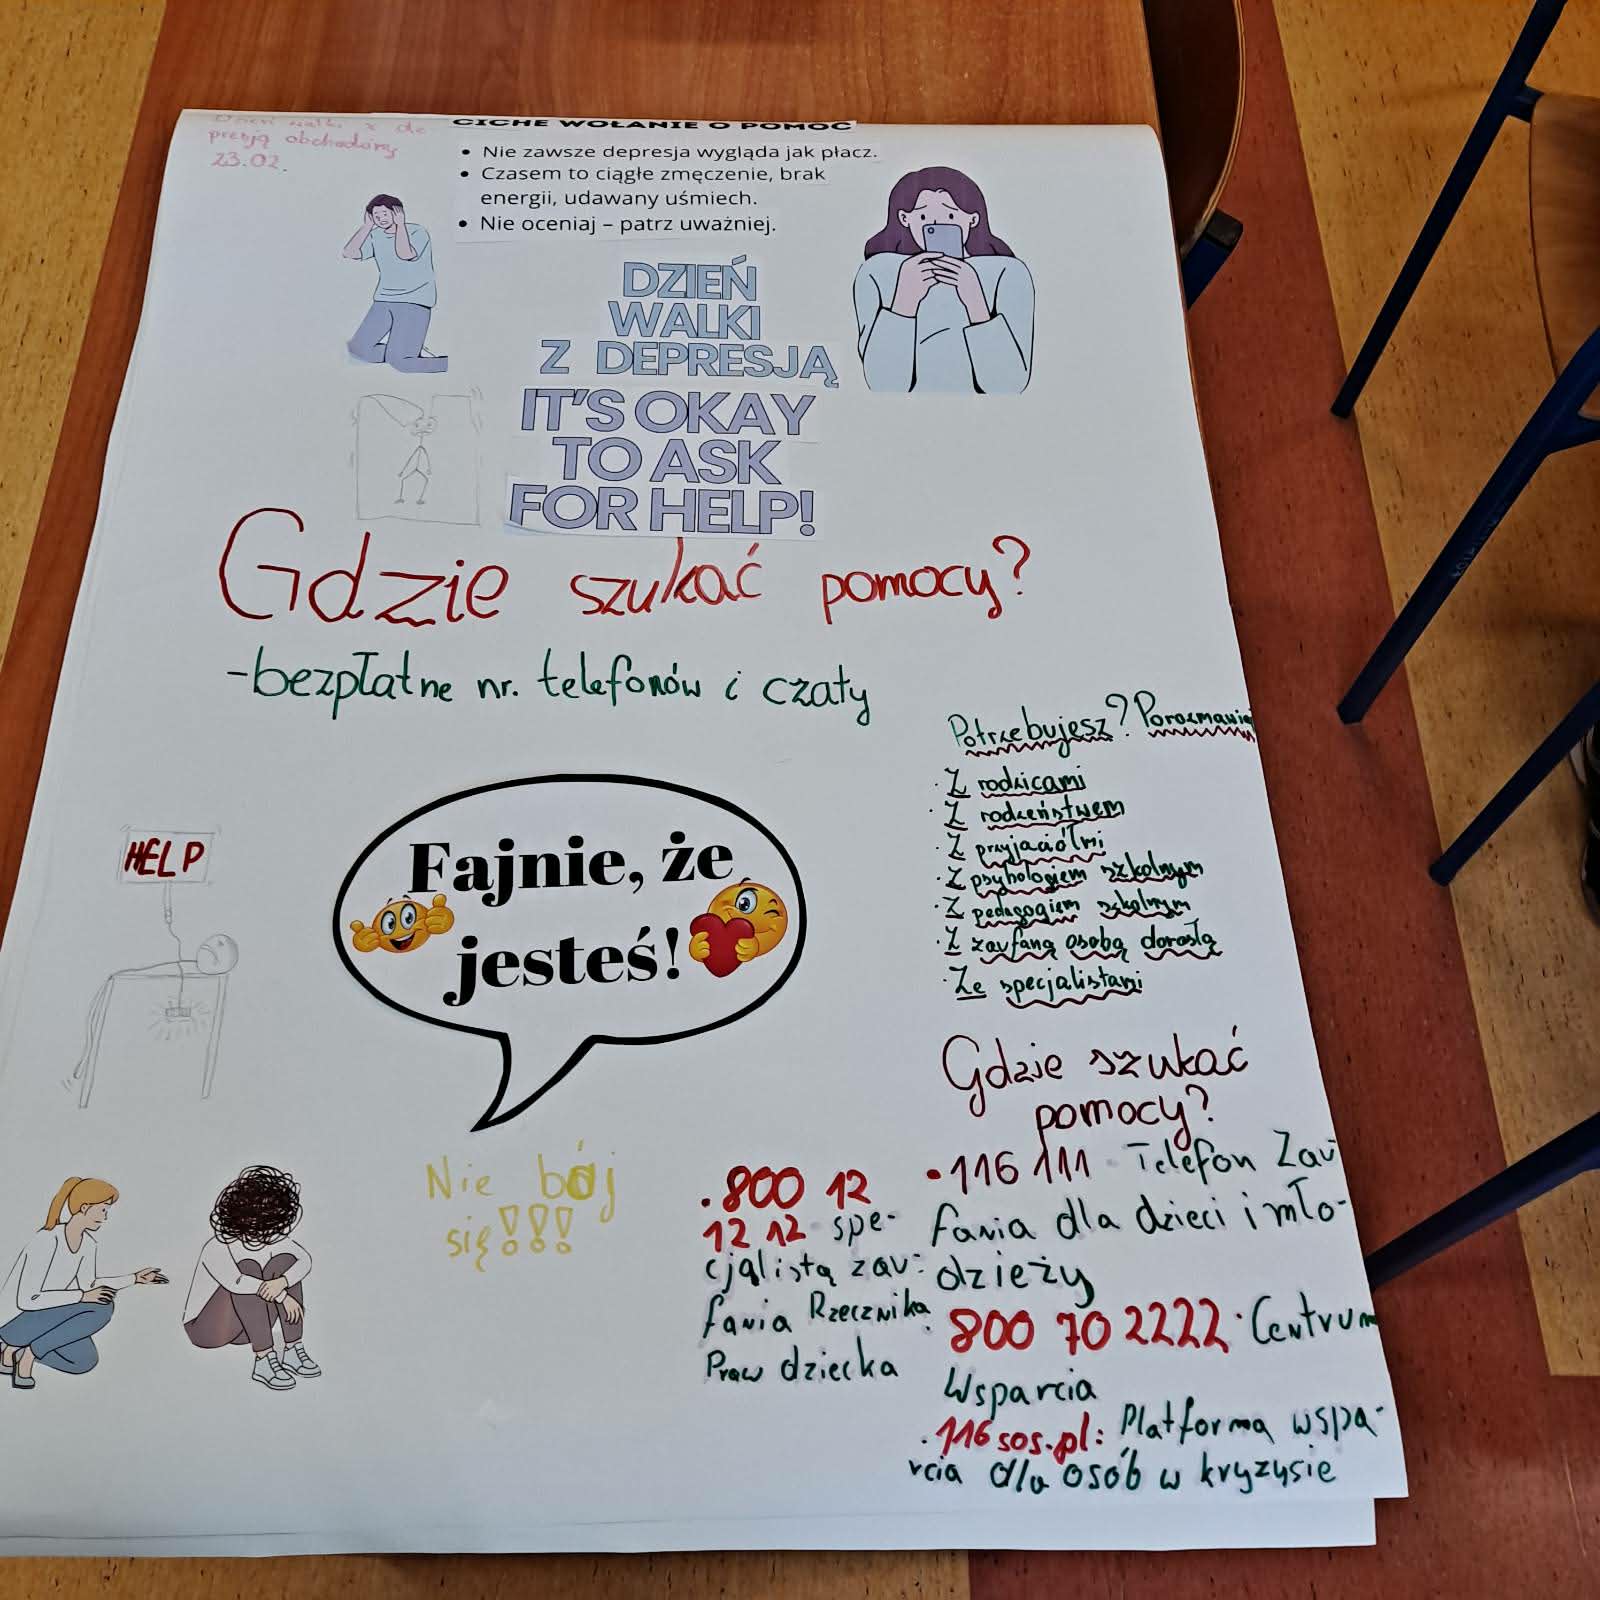 Dzień walki z de
presją obchodzimy
23.02.
CICHE WOŁANIE O POMOC
• Nie zawsze depresja wygląda jak płacz.
• Czasem to ciągłe zmęczenie, brak
energii, udawany uśmiech.
• Nie oceniaj – patrz uważniej.
DZIEŃ
WALKI
Z DEPRESJĄ
IT'S OKAY
TO ASK
FOR HELP!
Gdzie szukać pomocy?
-bezpłatne nr. telefonów i czaty
Potrzebujesz? Porozmawiaj
· Z rodzicami
· Z rodzeństwem
· Z przyjaciółmi
· Z psychologiem szkolnym
· Z pedagogiem szkolnym
· Z zaufaną osobą dorosłą
· Ze specjalistami
HELP
Fajnie, że
jesteś!
Nie bój
się!!!
• 800 12
12 12 spe-
cjalistą zau-
fania Rzecznika
Praw dziecka
Gdzie szukać
pomocy?
• 116 111 Telefon Zau
fania dla dzieci i mło-
dzieży
• 800 70 2222 · Centrum
Wsparcia
• 116sos.pl: Platforma wspa-
rcia dla osób w kryzysie